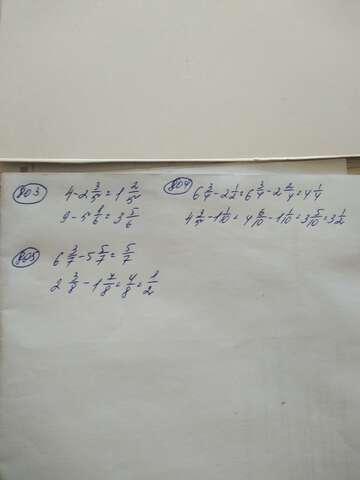 803 4-2 3/5=1 2/5
9-5 1/6=3 5/6
804 6 3/4-2 1/2=6 3/4-2 2/4=4 1/4
4 3/5-1 1/10=4 6/10-1 1/10=3 5/10=3 1/2
805 6 3/7-5 5/7=5/7
2 3/8-1 7/8=4/8=1/2